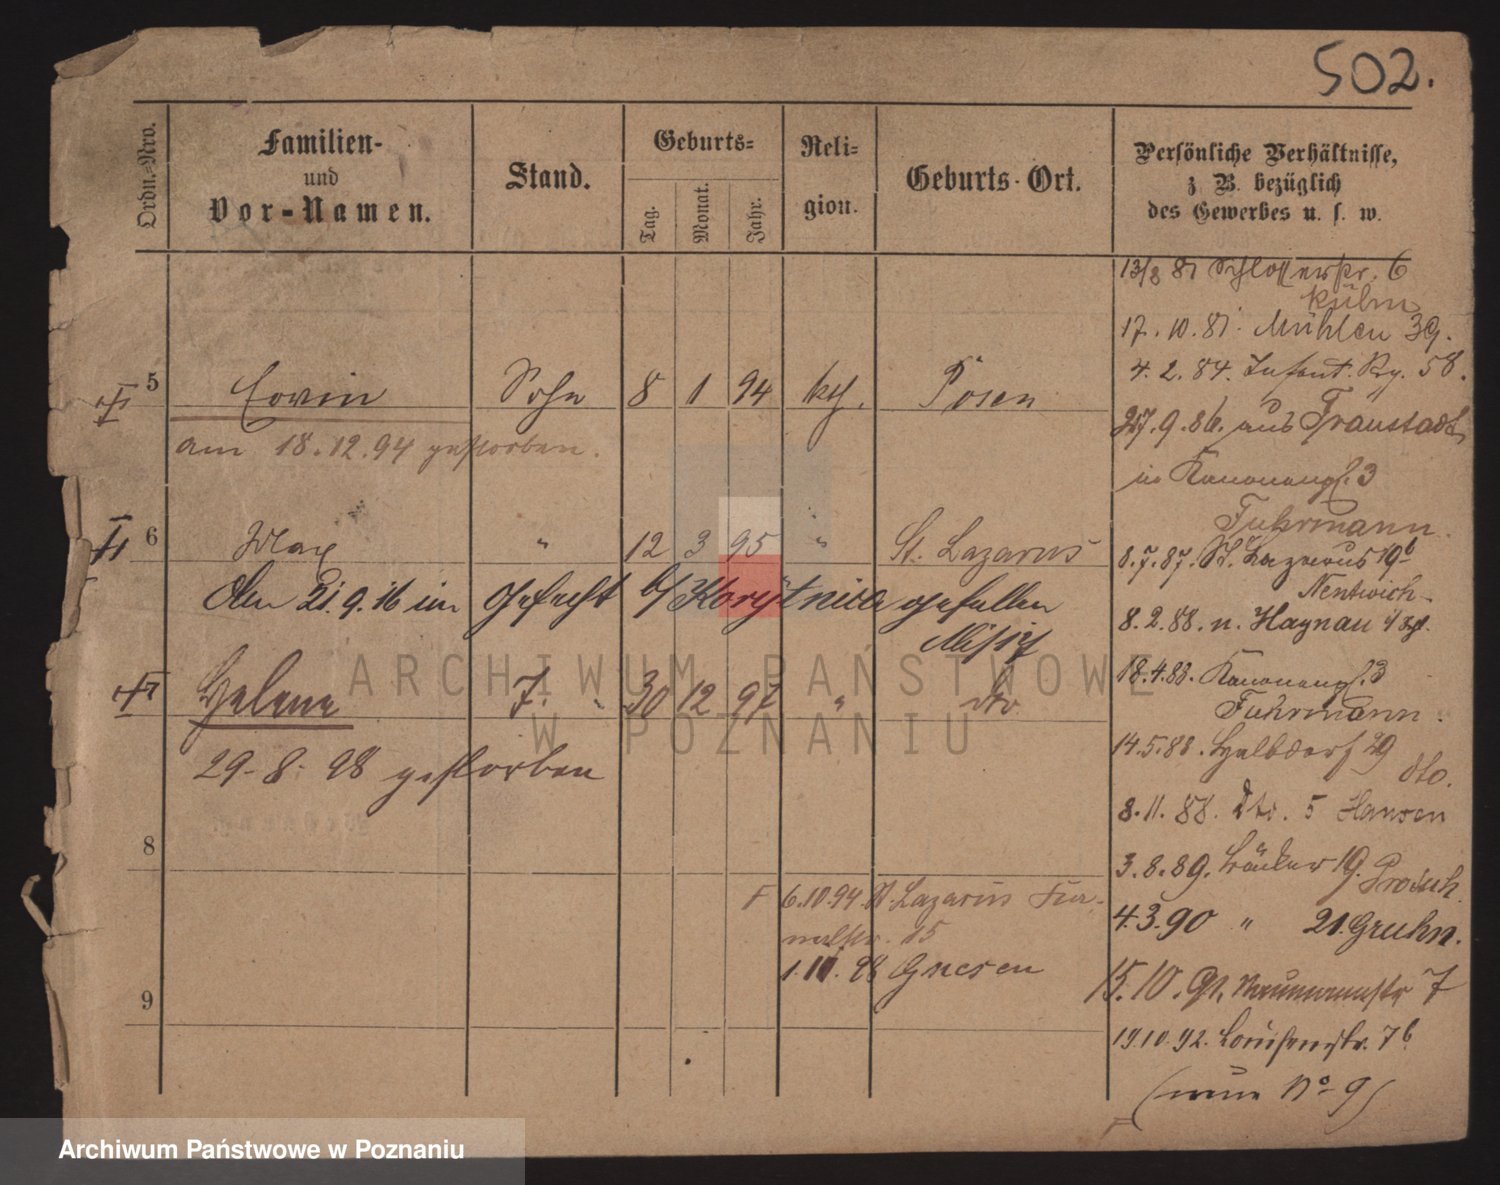 502.
Ordn.-Nro.
Familien-
und
Vor-Namen.
Stand.
Geburts-
Tag. Monat. Jahr.
Reli-
gion.
Geburts-Ort.
Persönliche Verhältnisse,
z. B. bezüglich
des Gewerbes u. s. w.
5 Erwin Sohn 8 1 94 kth. Posen
am 18.12.94 gestorben.
6 Max " 12 3 95 " St. Lazarus
den 21.9.16 im Gefecht b/ Korytnica gefallen
7 Helene T. 30 12 97 " dto
29-8-98 gestorben
8
6.10.94. St. Lazarus
15
1.11.98 Gnesen
9
13/8 81 Schlosserstr. 6
Kühn
17.10.81. Mühlen 39.
4.2.84. Infant. Rg. 58.
27.9.86. aus Fraustadt
in Kanonenpl. 3
Fuhrmann.
8.7.87. St. Lazarus 19b
Nentwich
8.2.88. n. Haynau
18.4.88. Kanonenpl. 3
Fuhrmann.
14.5.88. Halbdorf 29
dto.
8.11.88. dto. 5 Hansen
3.8.89. Bäcker 19.
4.3.90 " 21. Gruhn.
15.10.91. Naumannstr 7
19.10.92. Louisenstr. 7b
(nun No 9)
ARCHIWUM PAŃSTWOWE
W POZNANIU
Archiwum Państwowe w Poznaniu